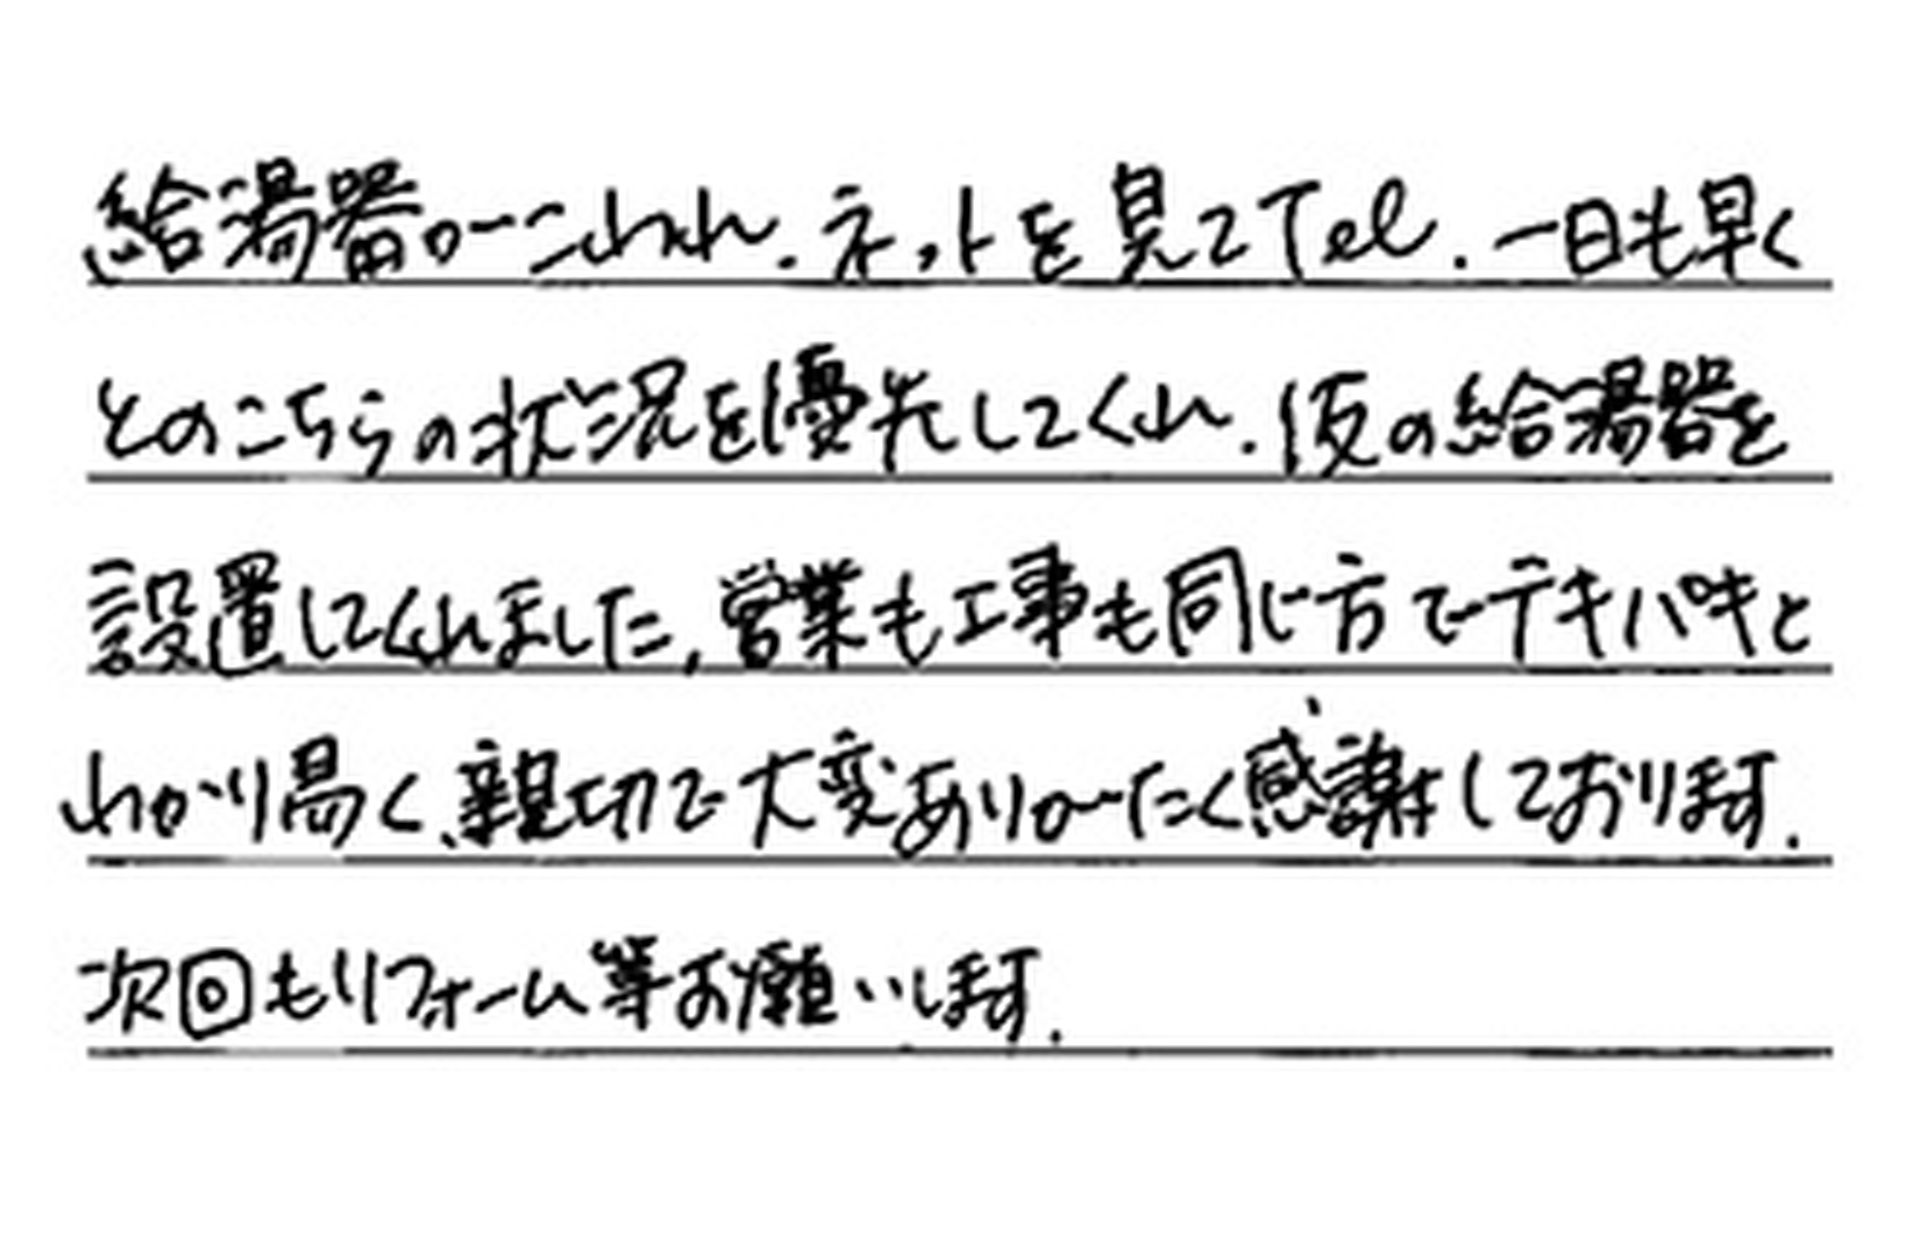 給湯器がこわれ.ネットを見てTel.一日も早く
とのこちらの状況を優先してくれ.仮の給湯器を
設置してくれました,営業も工事も同じ方でテキパキと
わかり易く、親切で大変ありがたく感謝しております.
次回もリフォーム等お願いします.